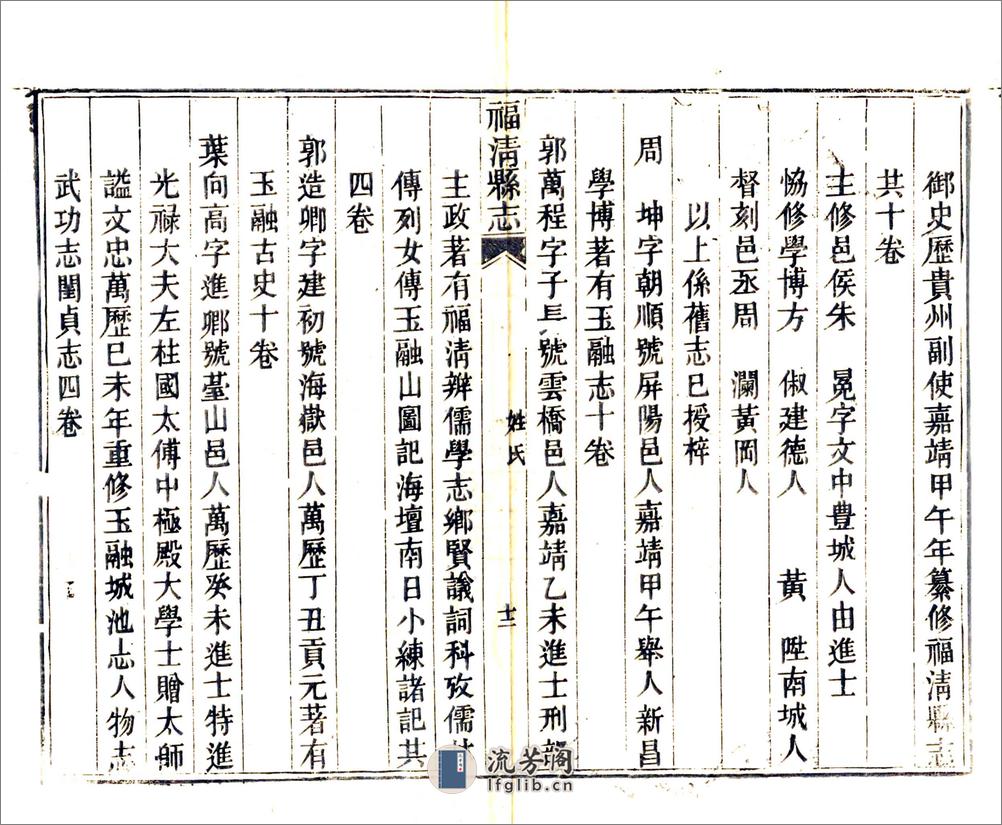 御史歷貴州副使嘉靖甲午年纂修福淸縣志
共十卷
主修邑侯朱　冕字文中豊城人由進士
恊修學博方　俶建德人　　黃　陞南城人
督刻邑丞周　瀾黃岡人
以上係舊志已授梓
周　坤字朝順號屏陽邑人嘉靖甲午舉人新昌
學博著有玉融志十卷
郭萬程字子長號雲橋邑人嘉靖乙未進士刑部
福淸縣志
姓氏
十二
主政著有福淸辨儒學志鄉賢議詞科攷儒林
傳列女傳玉融山圖記海壇南日小練諸記共
四卷
郭造卿字建初號海嶽邑人萬歷丁丑貢元著有
玉融古史十卷
葉向高字進卿號臺山邑人萬歷癸未進士特進
光祿大夫左柱國太傅中極殿大學士贈太師
謚文忠萬歷已未年重修玉融城池志人物志
武功志閨貞志四卷
流芳閣
lfglib.cn